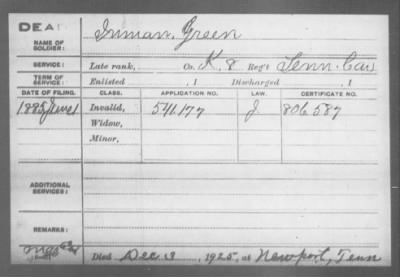 DEAD
NAME OF SOLDIER: Inman, Green
SERVICE: Late rank, Co. K, 8 Reg't Tenn. Cav
TERM OF SERVICE: Enlisted , 1 Discharged , 1
DATE OF FILING. CLASS. APPLICATION NO. LAW. CERTIFICATE NO.
1885 June 1 Invalid, 541,177 J 806,587
Widow,
Minor,
ADDITIONAL SERVICES:
REMARKS:
Died Dec 3, 1925, at Newport, Tenn